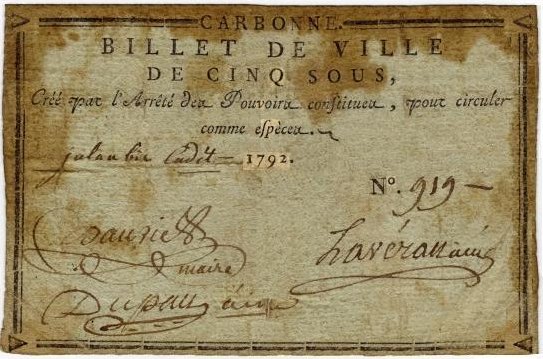 CARBONNE.
BILLET DE VILLE
DE CINQ SOUS,
Créé par l'Arrêté des Pouvoirs constitués, pour circuler
comme espèces.
Cadet 1792.
N°. 919
maire
Lavéran ainé
Dupau ainé